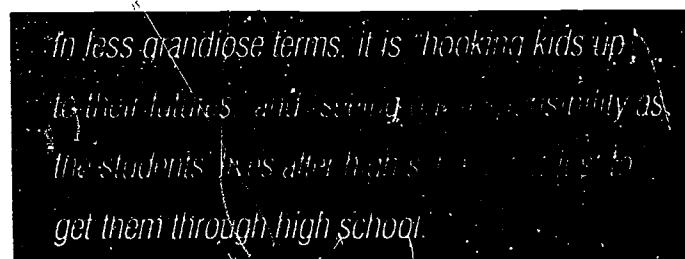 In less grandiose terms, it is "hooking kids up
to their futures" and seeing our responsibility as
the students' lives after high to
get them through high school.